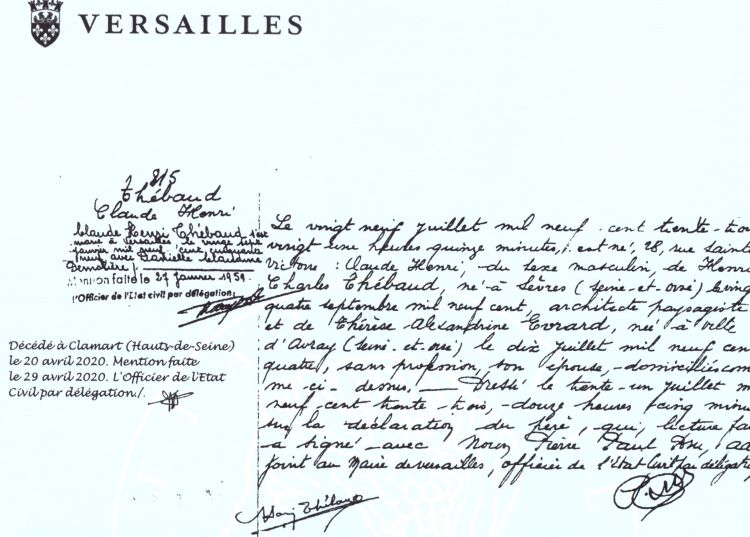 VERSAILLES
815
Thébaud
Claude Henri
Claude Henri Thébaud s'est
marié à Versailles le vingt sept
janvier mil neuf cent cinquante
neuf avec Danielle Claudine
Demolière ;
Mention faite le 27 janvier 1959.
l'Officier de l'Etat civil par délégation;
Décédé à Clamart (Hauts-de-Seine)
le 20 avril 2020. Mention faite
le 29 avril 2020. L'Officier de l'Etat
Civil par délégation./.
Le vingt neuf juillet mil neuf cent trente-troi
vingt une heures quinze minutes, est né, 28, rue Sainte
Victoire : Claude Henri, du sexe masculin, de Henri
Charles Thébaud, né à Sèvres (Seine-et-Oise) le vingt
quatre septembre mil neuf cent, architecte paysagiste
et de Thérèse Alexandrine Evrard, née à Ville
d'Avray (Seine-et-Oise) le dix juillet mil neuf cen
quatre, sans profession, son épouse, domiciliés com
me ci-dessus, — Dressé le trente-un juillet m
neuf cent trente-trois, douze heures cinq minu
sur la déclaration du père, qui, lecture fai
a signé avec Nous, Pierre Paul ad
joint au Maire de Versailles, officier de l'état Civil par délégation